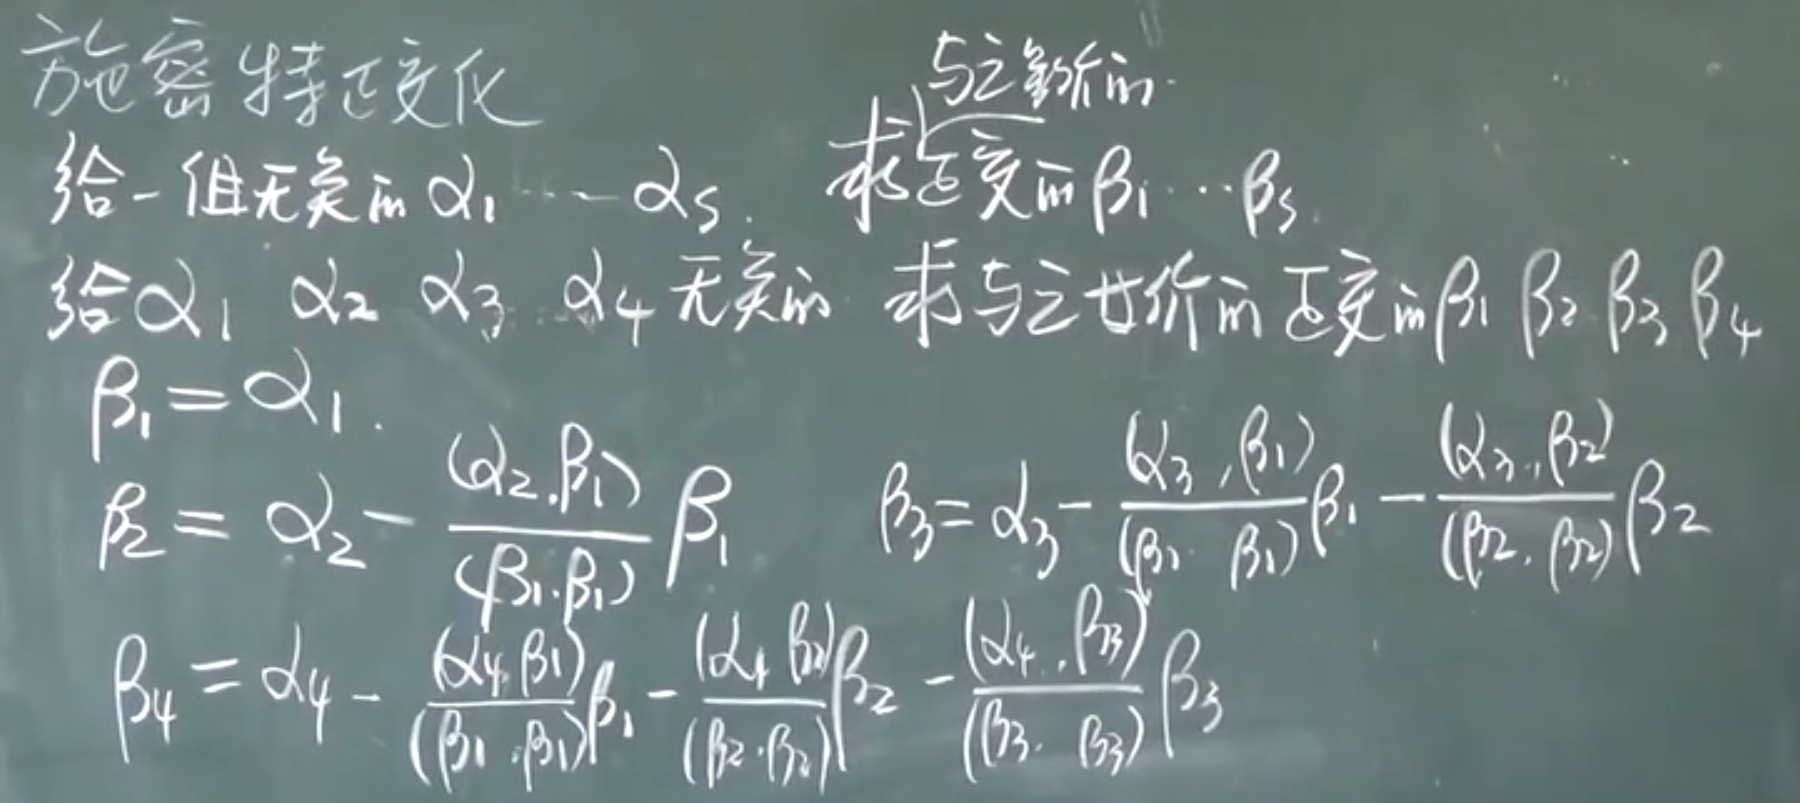 施密特正交化
给一组无关的 α₁ ⋯ αₛ. 求与之等价的正交的 β₁ ⋯ βₛ.
给 α₁ α₂ α₃ α₄ 无关的 求与之廿价的正交的 β₁ β₂ β₃ β₄
β₁ = α₁.
β₂ = α₂ - (α₂,β₁)/(β₁,β₁) β₁  β₃ = α₃ - (α₃,β₁)/(β₁,β₁) β₁ - (α₃,β₂)/(β₂,β₂) β₂
β₄ = α₄ - (α₄,β₁)/(β₁,β₁) β₁ - (α₄,β₂)/(β₂,β₂) β₂ - (α₄,β₃)/(β₃,β₃) β₃